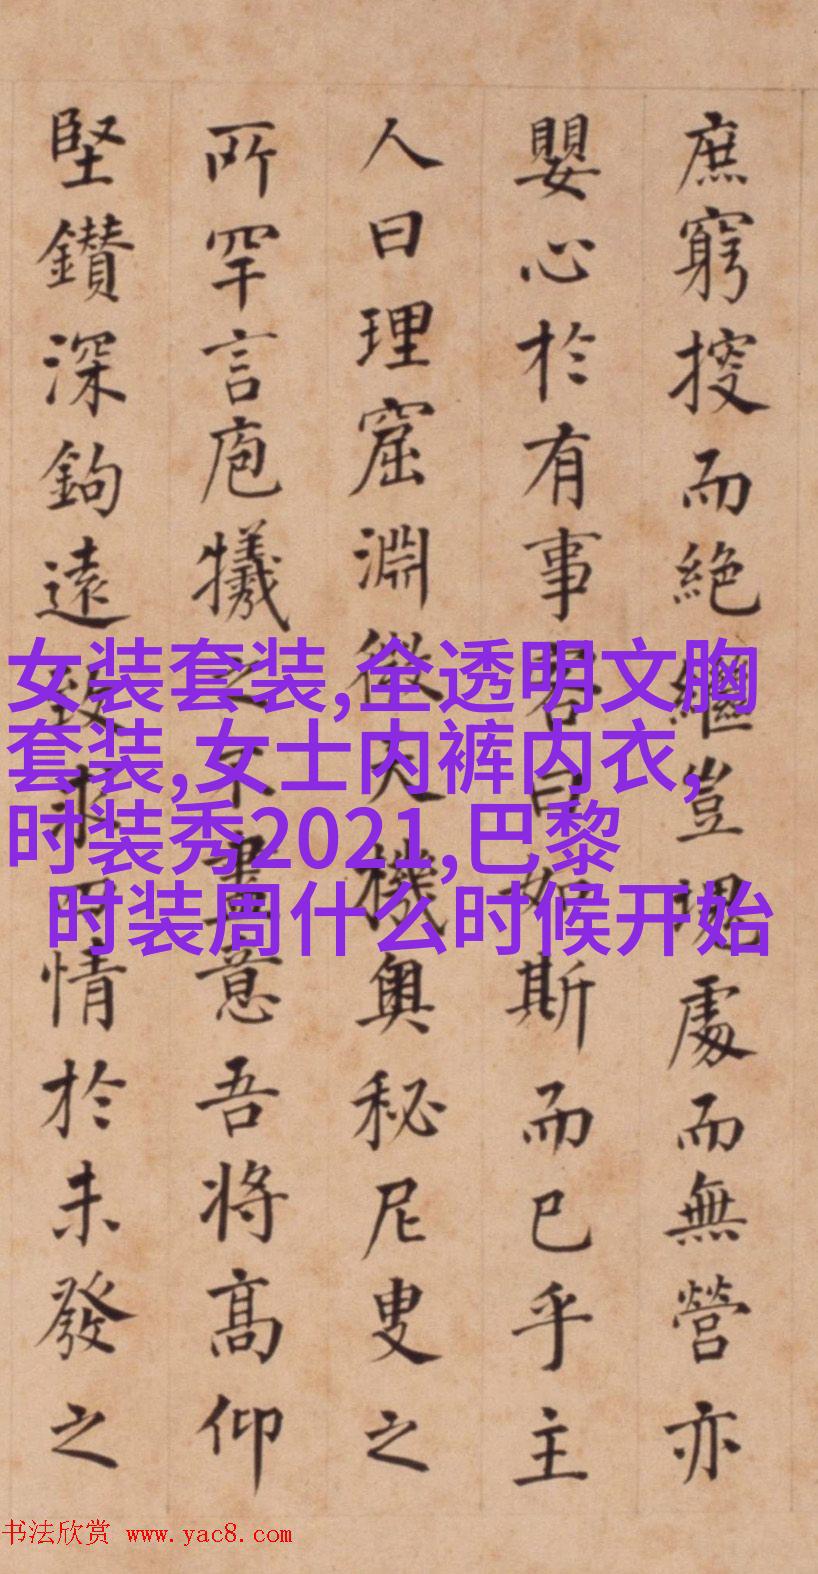 庶窮而絶繼豈處而無營亦
嬰心於有事客曰如斯而已乎主
人曰理窟淵微天機奧秘尼叟之
所罕言庖犧之不盡意吾將高仰
堅鑽深鉤遠致求情於未發之
女装套装,全透明文胸
套装,女士内裤内衣,
时装秀2021,巴黎
时装周什么时候开始
书法欣赏 www.yac8.com